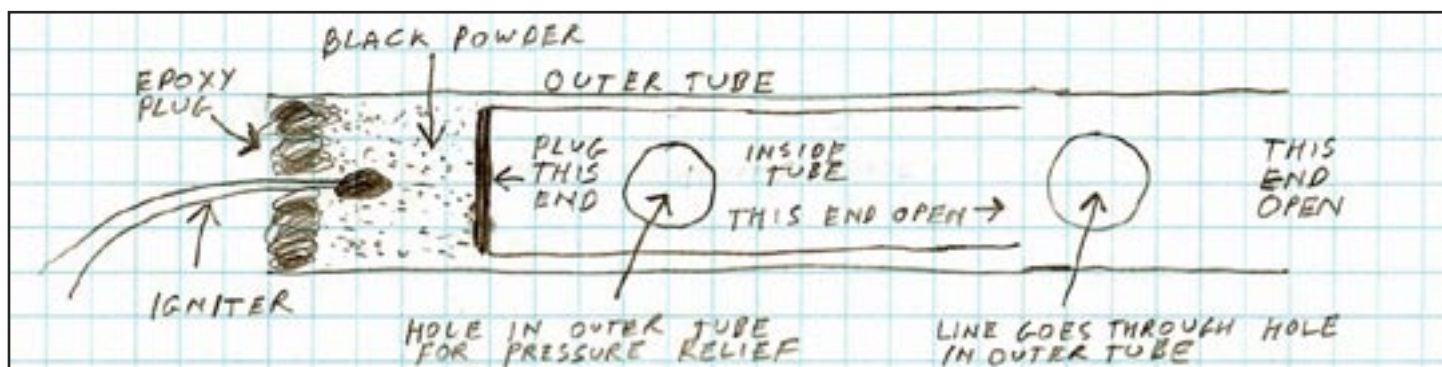 BLACK POWDER
EPOXY
PLUG
OUTER TUBE
PLUG
THIS
END
INSIDE
TUBE
THIS END OPEN
THIS
END
OPEN
IGNITER
HOLE IN OUTER TUBE
FOR PRESSURE RELIEF
LINE GOES THROUGH HOLE
IN OUTER TUBE